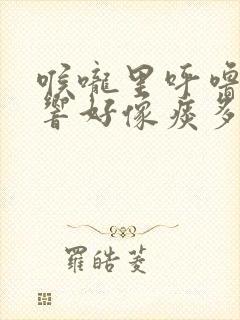 喉嚨里呼嚕
響好像痰多
羅皓菱